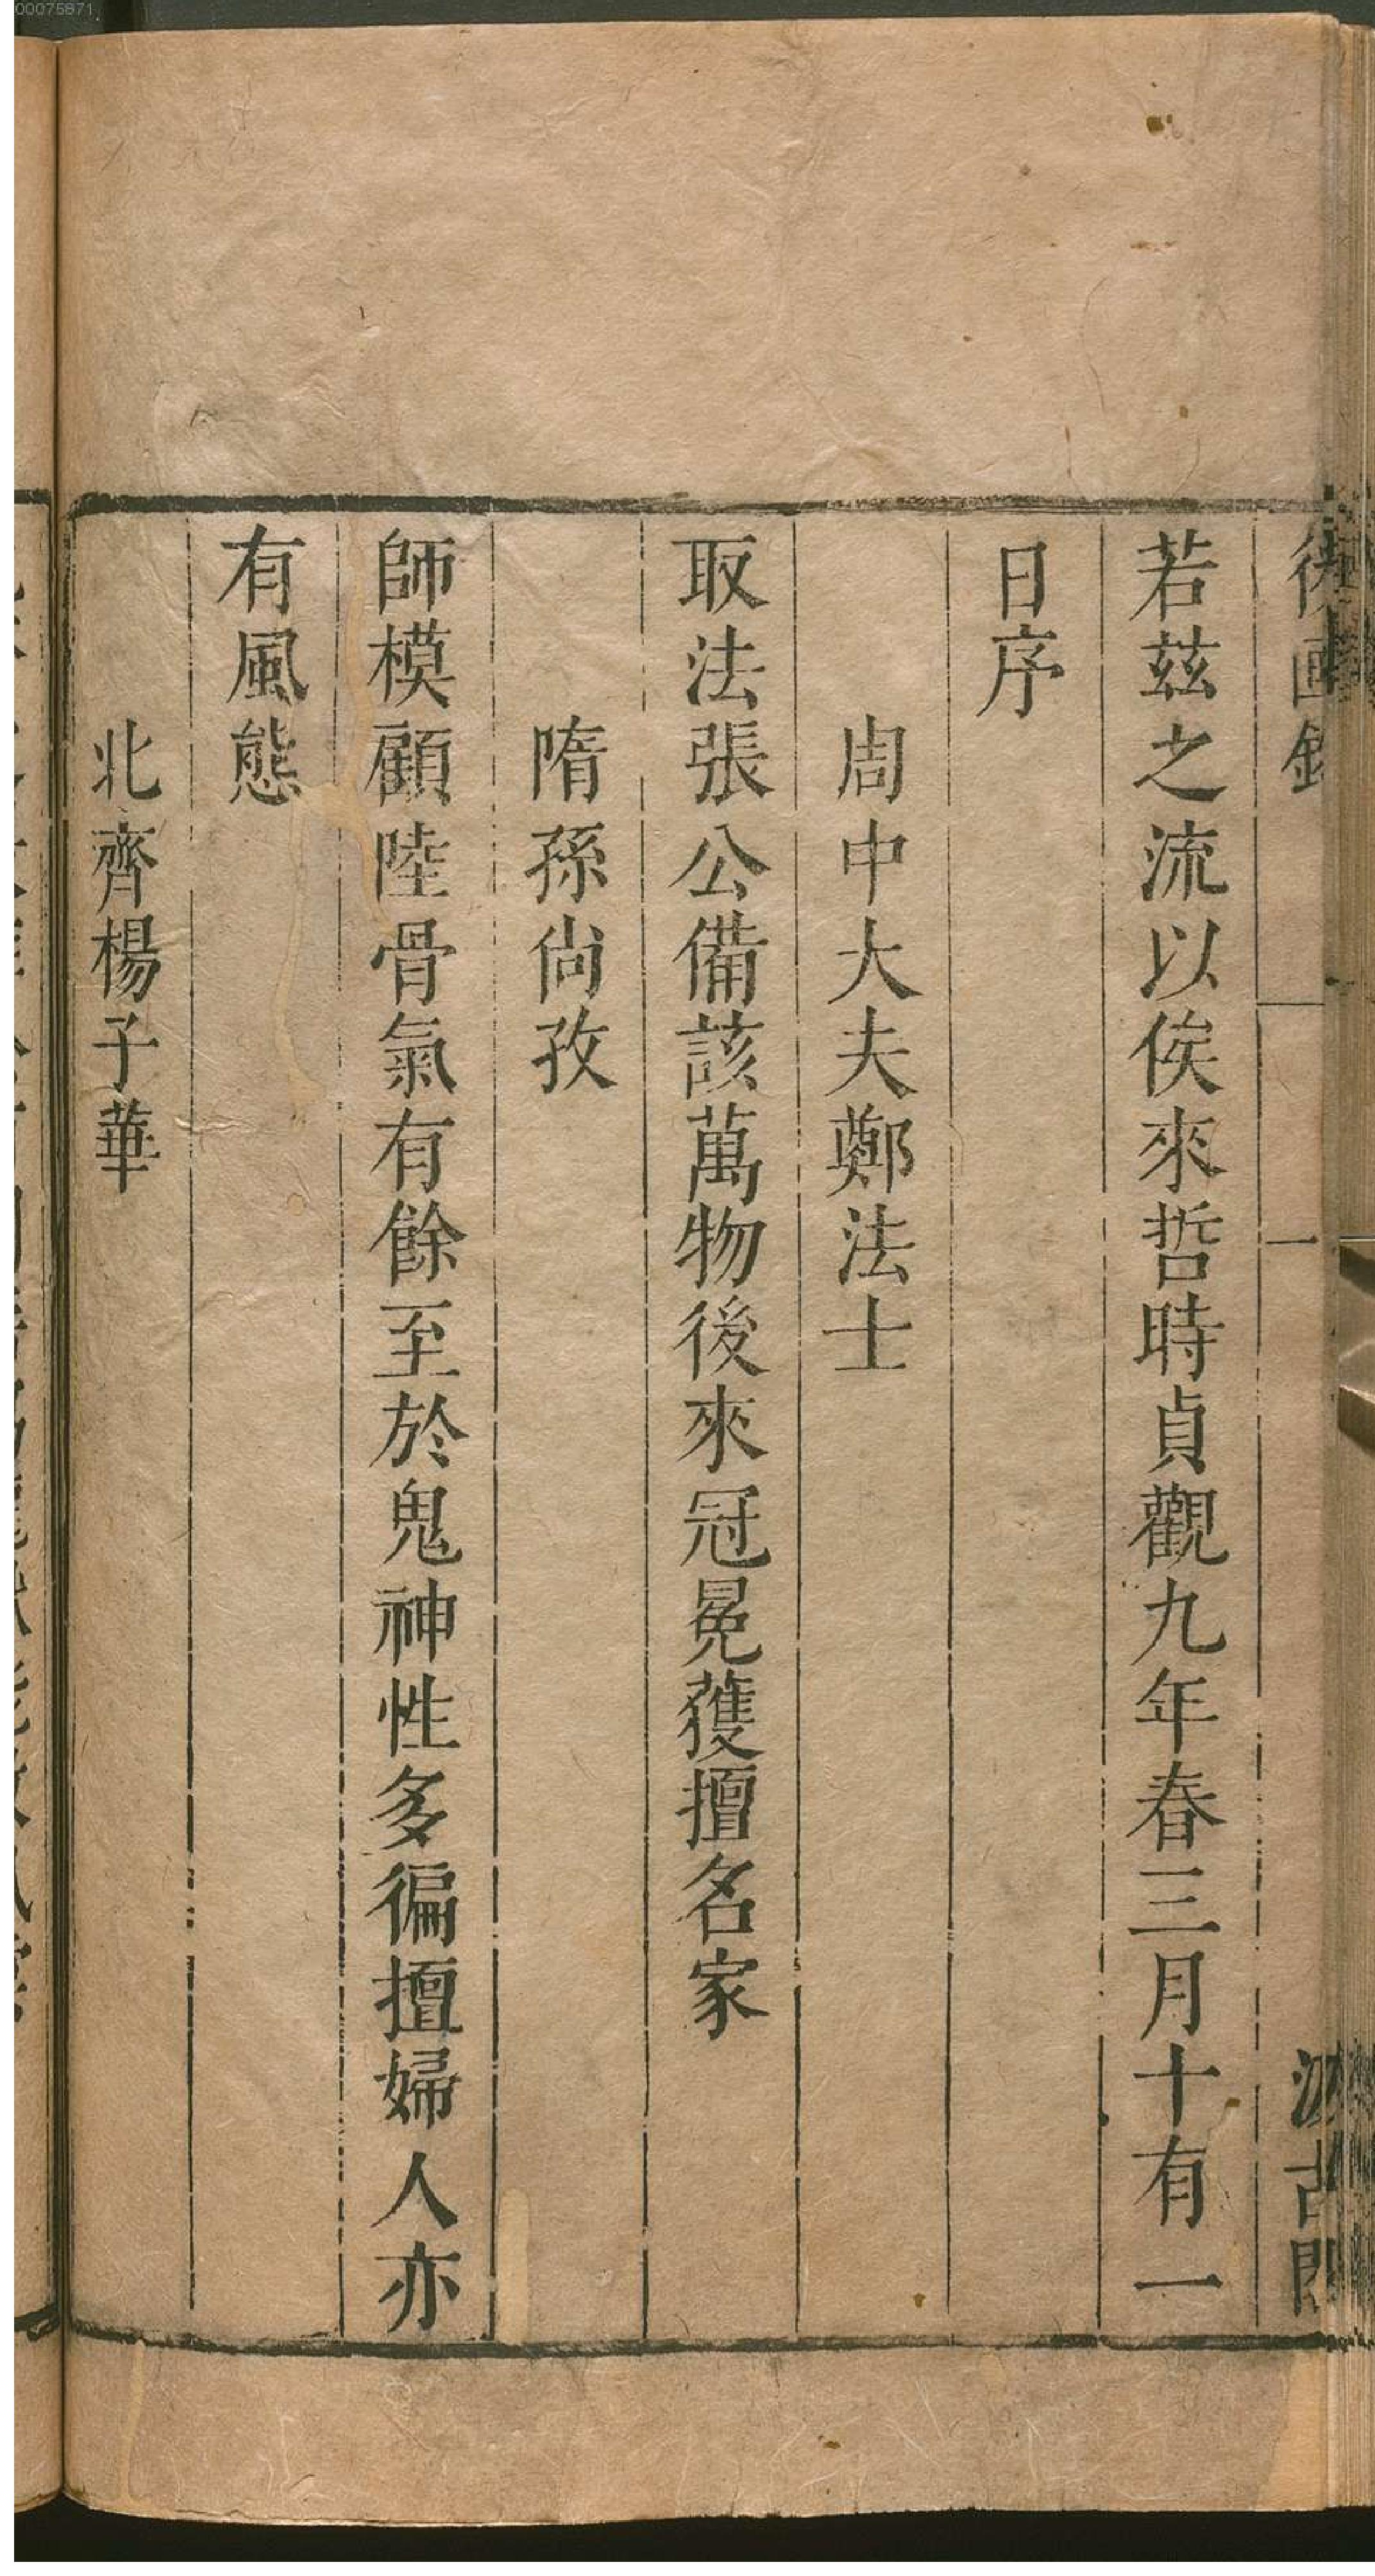 00075871
後畫錄 一 汲古閣
若茲之流以俟來哲時貞觀九年春三月十有一
日序
周中大夫鄭法士
取法張公備該萬物後來冠冕獲擅名家
隋孫尙孜
師模顧陸骨氣有餘至於鬼神性多徧擅婦人亦
有風態
北齊楊子華